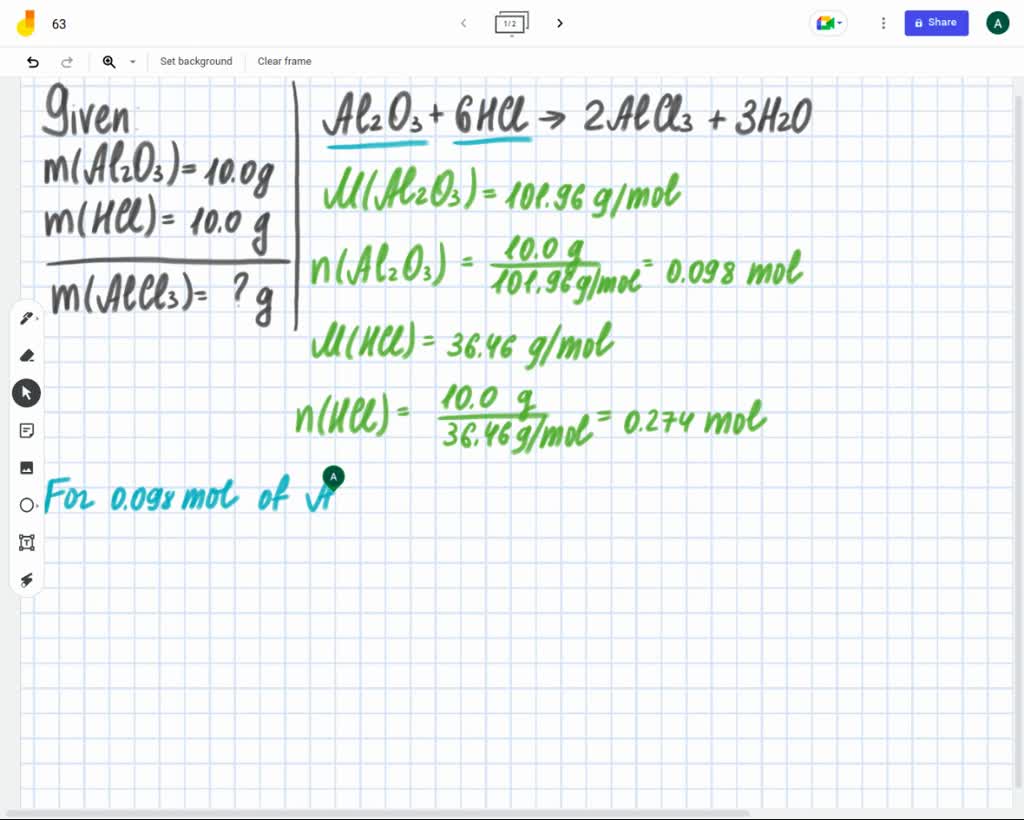 63
1/2
Share
A
Set background
Clear frame
Given
m(Al₂O₃)= 10.0g
m(HCl)= 10.0 g
m(AlCl₃)= ? g
Al₂O₃ + 6HCl → 2AlCl₃ + 3H₂O
M(Al₂O₃)= 101.96 g/mol
n(Al₂O₃) = 10.0 g / 101.96 g/mol = 0.098 mol
M(HCl)= 36.46 g/mol
n(HCl)= 10.0 g / 36.46 g/mol = 0.274 mol
A
For 0.098 mol of A